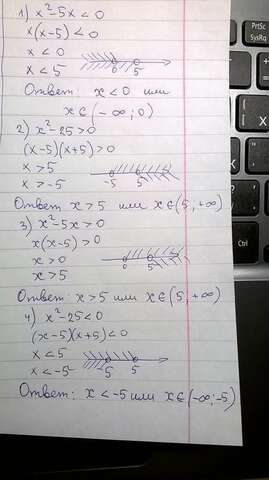 1) x²-5x<0
x(x-5)<0
x<0
x<5
0 5
Ответ: x<0 или
x∈(-∞;0)
2) x²-25>0
(x-5)(x+5)>0
x>5
x>-5
-5 5
Ответ x>5 или x∈(5,+∞)
3) x²-5x>0
x(x-5)>0
x>0
x>5
0 5
Ответ x>5 или x∈(5,+∞)
4) x²-25<0
(x-5)(x+5)<0
x<5
x<-5
-5 5
Ответ: x<-5 или x∈(-∞;-5)
PrtSc
SysRq
Shift
Ctrl